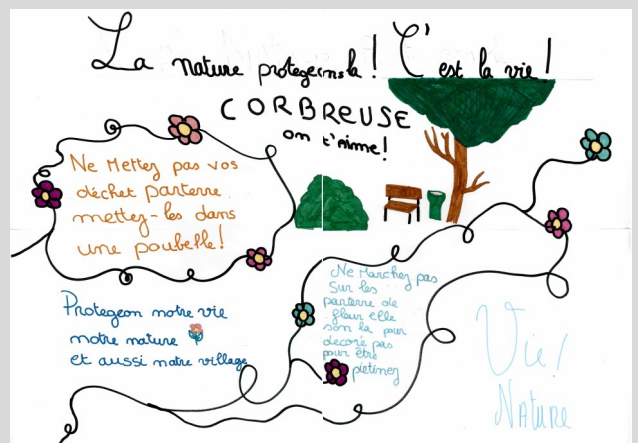 La nature protegeonsla ! C'est la vie !
CORBREUSE
on t'aime !
Ne Mettez pas vos
déchet parterre
mettez-les dans
une poubelle !
Protegeon notre vie
notre nature
et aussi notre village
Ne Marchez pas
Sur les
parterre de
fleur elle
son la pour
decoré pas
pour être
pietinez
Vie !
Nature